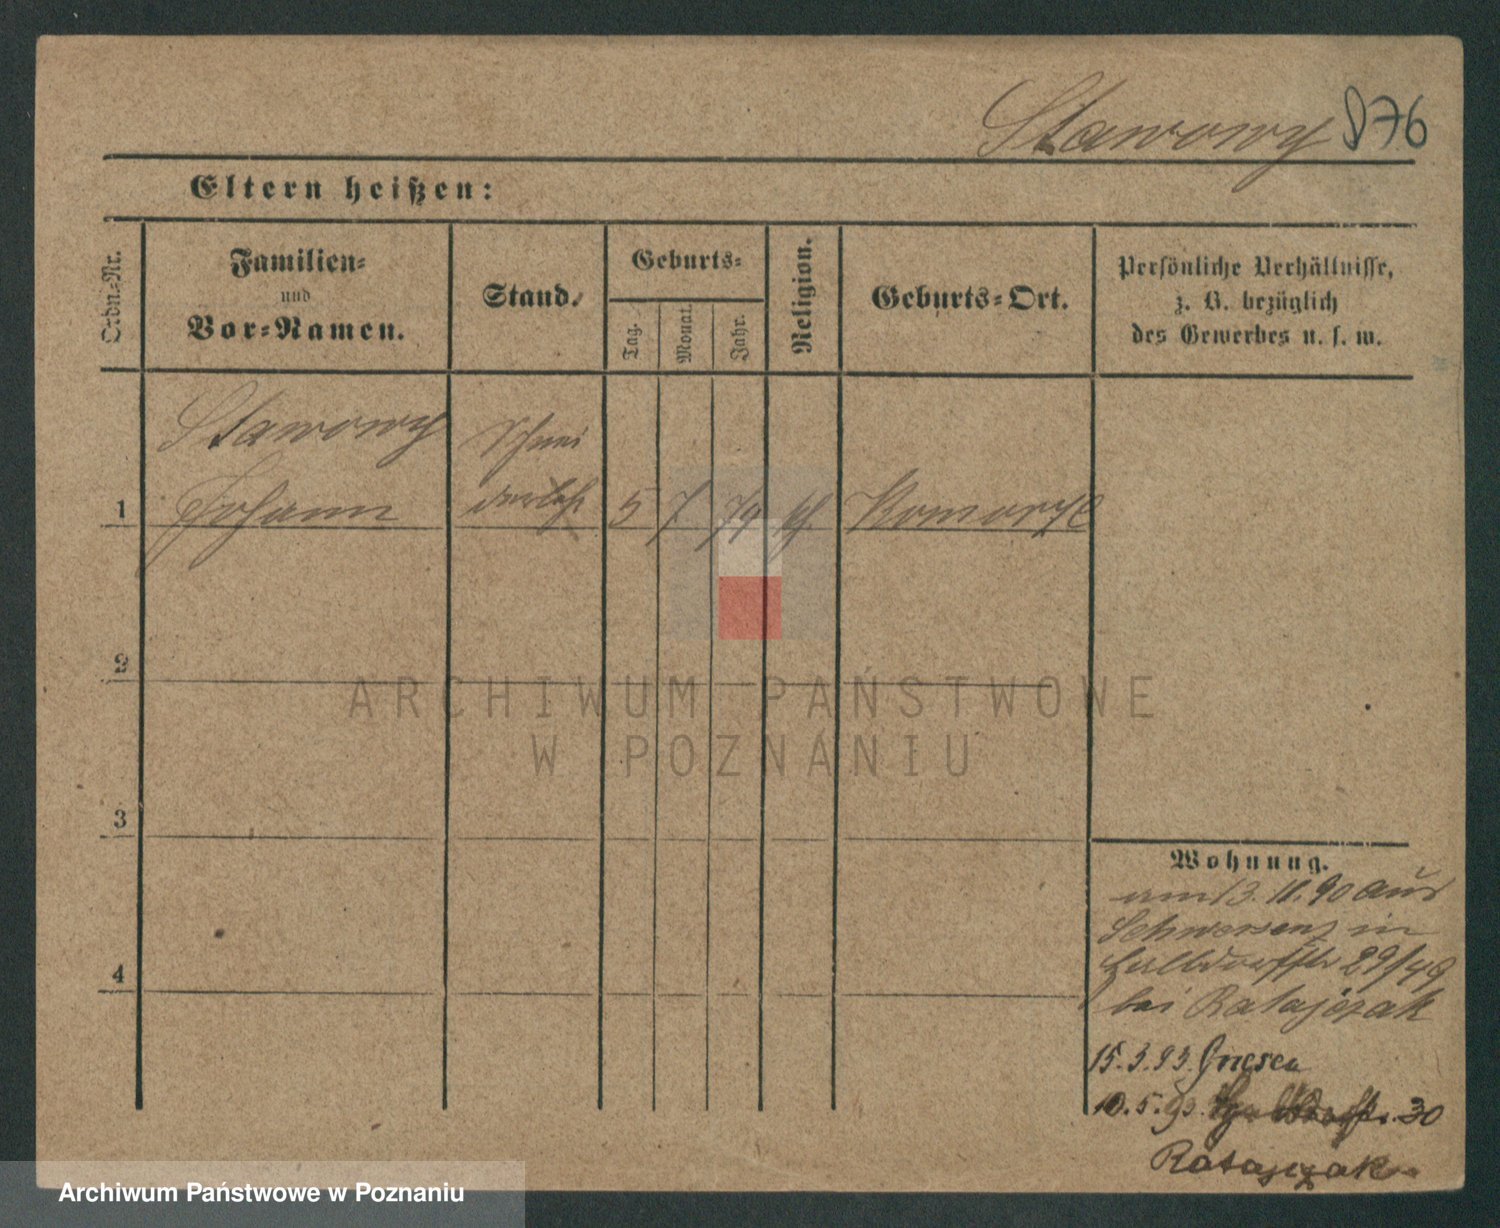 Stawowy 876
Eltern heißen:
Ordn.-Nr.
Familien-
und
Vor-Namen.
Stand.
Geburts-
Tag.
Monat.
Jahr.
Religion.
Geburts-Ort.
Persönliche Verhältnisse,
z. B. bezüglich
des Gewerbes u. s. w.
Stawowy
Johann
Schnei
1
5 7 79
2
3
4
ARCHIWUM PAŃSTWOWE
W POZNANIU
Wohnung.
am 13. 11. 90 aus
Schwersenz in
29/49
bei Ratajczak
15. 3. 93. Gnesen
10. 5. 93. 30
Ratajczak
Archiwum Państwowe w Poznaniu